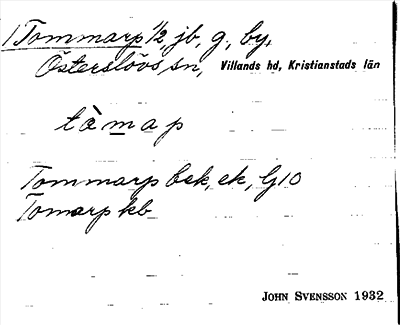 Tommarp 1/2, jb, g, by,
Österslövs sn, Villands hd, Kristianstads län
tàmap
Tommarp bek, ek, G10
Tomarp kb
JOHN SVENSSON 1932